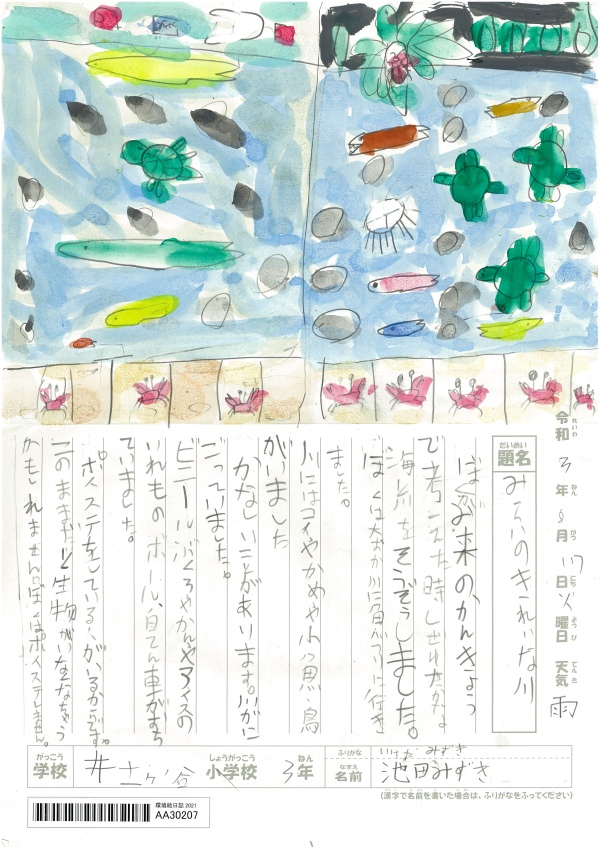 令和 3 年 8 月 17 日 火 曜日 天気 雨
れいわ ねん がつ にち ようび てんき
だいめい
題名 みらいのきれいな川
ぼくが未来のかんきょう
で考えた時
海 をそうぞうしました。
ぼくは大おか川に魚つりに行き
ました。
川にはコイやかめや小魚・鳥
がいました
かなしいことがあります。川がに
ごっていました。
ビニールぶくろやかんやアイスの
いれものボール、自てん車がおち
ていました。
ポイステをしている人がいるからです。
このままだと生物がいなくなちゃう
かもしれません。ぼくはポイステしません。
がっこう しょうがっこう ねん ふりがな いけだ みずき
学校 井土ヶ谷 小学校 3年 なまえ 名前 池田みずき
(漢字で名前を書いた場合は、ふりがなをふってください)
環境絵日記 2021
AA30207